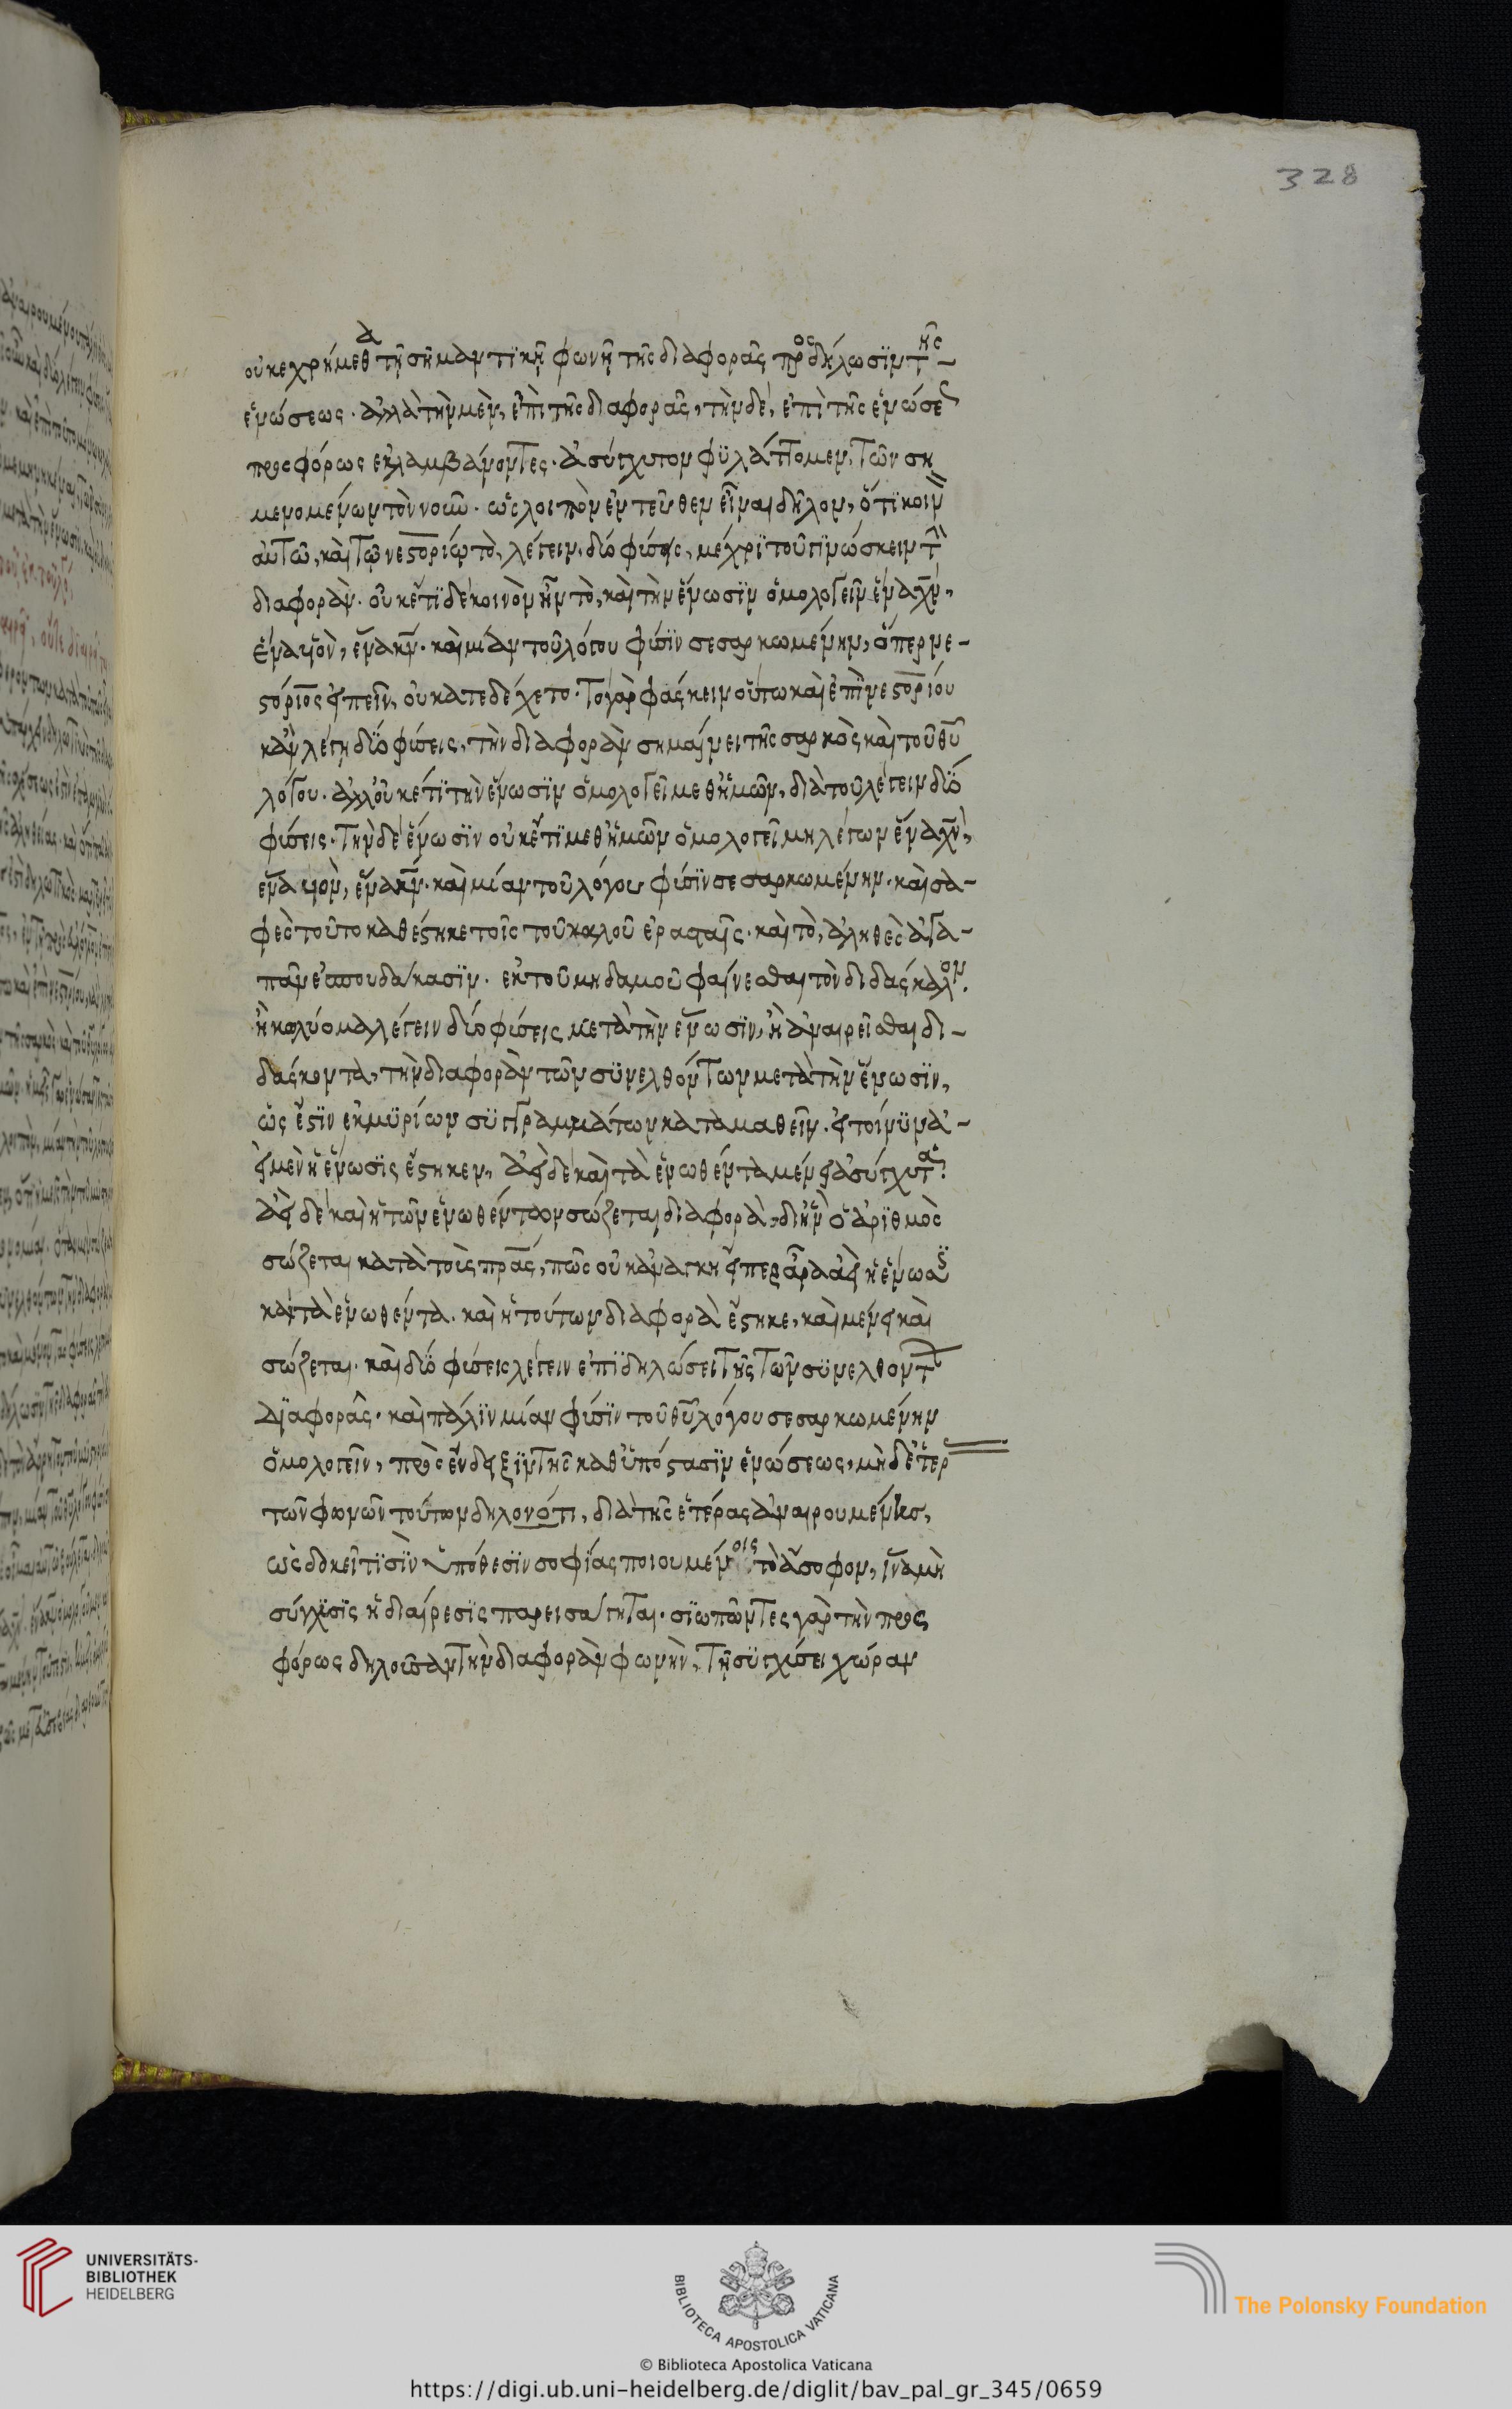 328
οὐ κεχρήμεθα τῇ σημαντικῇ φωνῇ τῆς διαφορᾶς πρὸς δήλωσιν τῆς
ἑνώσεως. ἀλλὰ τὴν μὲν, ἐπὶ τῆς διαφορᾶς, τὴν δὲ, ἐπὶ τῆς ἑνώσε
προσφόρως ἐκλαμβάνοντες. ἀσύγχυτον φυλάττομεν, τῶν ση
μενομένων τὸν νοῦν. ὡς λοιπὸν ἐντεῦθεν εἶναι δῆλον, ὅτι κοιν
αὐτῶ, καὶ τῶ νεστορίω τὸ, λέγειν, δύο φύσεις, μέχρι τοῦ γινώσκειν τὴν
διαφοράν. οὐκέτι δὲ κοινὸν ἦν τὸ, καὶ τὴν ἕνωσιν ὁμολογεῖν ἕνα χν,
ἕνα υἱὸν, ἕνα κν. καὶ μίαν τοῦ λόγου φύσιν σεσαρκωμένην, ὅπερ νε-
στόριος εἰπεῖν, οὐ κατεδέχετο. Το γὰρ φάσκειν οὕτω καὶ ἐπὶ νεστορίου
κἂν λέγη δύο φύσεις, τὴν διαφορὰν σημαίνει τῆς σαρκὸς καὶ τοῦ θυ
λόγου. ἀλλ' οὐκέτι τὴν ἕνωσιν ὁμολογεῖ μεθ' ἡμῶν, διὰ τοῦ λέγειν δύο
φύσεις. Τὴν δὲ ἕνωσιν οὐκέτι μεθ' ἡμῶν ὁμολογεῖ μὴ λέγων ἕνα χν,
ἕνα υἱὸν, ἕνα κν. καὶ μίαν τοῦ λόγου φύσιν σεσαρκωμένην. καὶ σα-
φὲς τοῦτο καθέστηκε τοῖς τοῦ καλοῦ ἐρασταῖς. καὶ τὸ, ἀληθὲς ἀγα-
πᾶν ἐσπουδακασιν. ἐκ τοῦ μηδαμοῦ φαίνεσθαι τὸν διδάσκαλον
ἢ κωλύομα λέγειν δύο φύσεις μετὰ τὴν ἕνωσιν, ἢ ἀναιρεῖσθαι δι-
δάσκοντα, τὴν διαφορὰν τῶν συνελθόντων μετὰ τὴν ἕνωσιν,
ὡς ἔστιν ἐκ μυρίων συγγραμμάτων καταμαθεῖν. εἰ τοίνυν ἀ-
εὶ μὲν ἡ ἕνωσις ἕστηκεν, ἀεὶ δὲ καὶ τὰ ἑνωθέντα μένει ἀσύγχυτα
ἀεὶ δὲ καὶ ἡ τῶν ἑνωθέντων σώζεται διαφορὰ, δι' ἣν ὁ ἀριθμὸς
σώζεται κατὰ τοὺς πρας, πῶς οὐκ ἀνάγκη εἴπερ ἄρα ἀεὶ ἡ ἕνωσις
καὶ τὰ ἑνωθέντα. καὶ ἡ τούτων διαφορὰ ἕστηκε, καὶ μένει καὶ
σώζεται. καὶ δύο φύσεις λέγειν ἐπὶ δηλώσει τῆς τῶν συνελθόντων
διαφορᾶς. καὶ πάλιν μίαν φύσιν τοῦ θυ λόγου σεσαρκωμένην
ὁμολογεῖν, πρὸς ἔνδειξιν τῆς καθ' ὑπόστασιν ἑνώσεως, μηδετερ
τῶν φωνῶν τούτων δηλονότι, διὰ τῆς ἑτέρας ἀναιρουμένης,
ὡς δοκεῖ τισὶν ὑπόθεσιν σοφίας ποιουμένοις τὸ ἄσοφον, ἵνα μὴ
σύγχυσις ἢ διαίρεσις παρεισάγηται. σιωπῶντες γὰρ τὴν προς
φόρως δηλοῦσαν τὴν διαφορὰν φωνὴν, τῇ συγχύσει χώραν
UNIVERSITÄTS-
BIBLIOTHEK
HEIDELBERG
BIBLIOTECA APOSTOLICA VATICANA
The Polonsky Foundation
© Biblioteca Apostolica Vaticana
https://digi.ub.uni-heidelberg.de/diglit/bav_pal_gr_345/0659